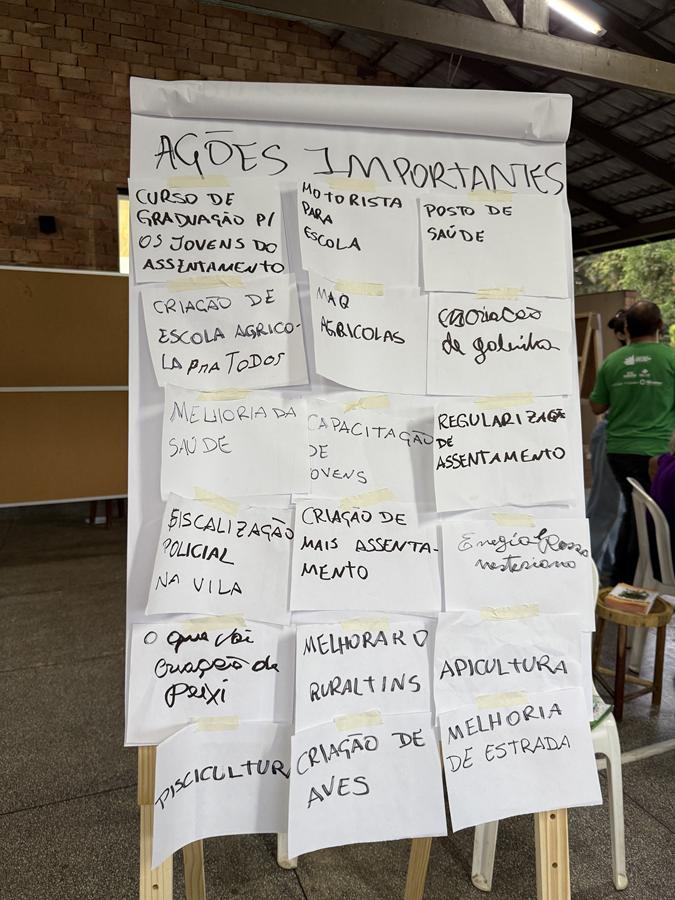 AÇÕES IMPORTANTES
CURSO DE
GRADUAÇÃO P/
OS JOVENS DO
ASSENTAMENTO
MOTORISTA
PARA
ESCOLA
POSTO DE
SAÚDE
CRIAÇÃO DE
ESCOLA AGRICO-
LA PRA TODOS
MAQ
AGRICOLAS
de galinha
MELHORIA DA
SAÚDE
CAPACITAÇÃO
DE
JOVENS
REGULARIZAÇÃO
DE
ASSENTAMENTO
FISCALIZAÇÃO
POLICIAL
NA VILA
CRIAÇÃO DE
MAIS ASSENTA-
MENTO
O que vai
criação de
peixi
MELHORAR O
RURALTINS
APICULTURA
PISCICULTURA
CRIAÇÃO DE
AVES
MELHORIA
DE ESTRADA